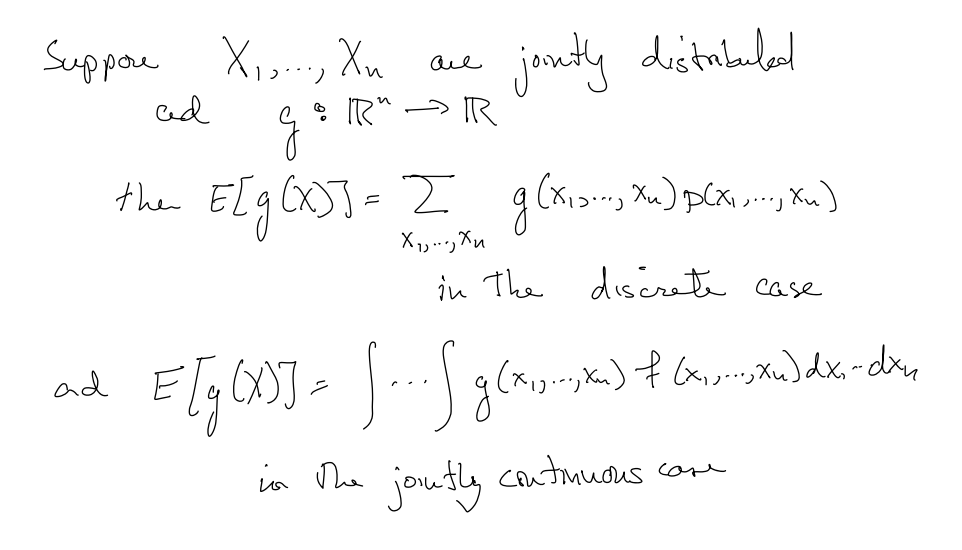 Suppose X₁,..., Xₙ are jointly distributed
and g : ℝⁿ → ℝ
then E[g(X)] = ∑ g(x₁,..., xₙ) p(x₁,..., xₙ)
x₁,...,xₙ
in the discrete case
and E[g(X)] = ∫ ... ∫ g(x₁,...,xₙ) f(x₁,...,xₙ) dx₁...dxₙ
in the jointly continuous case